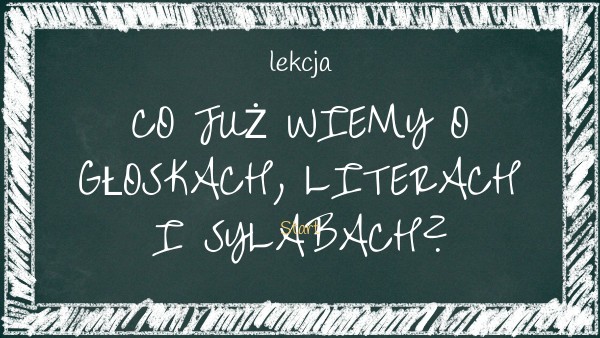 lekcja
CO JUŻ WIEMY O
GŁOSKACH, LITERACH
I SYLABACH?
Start